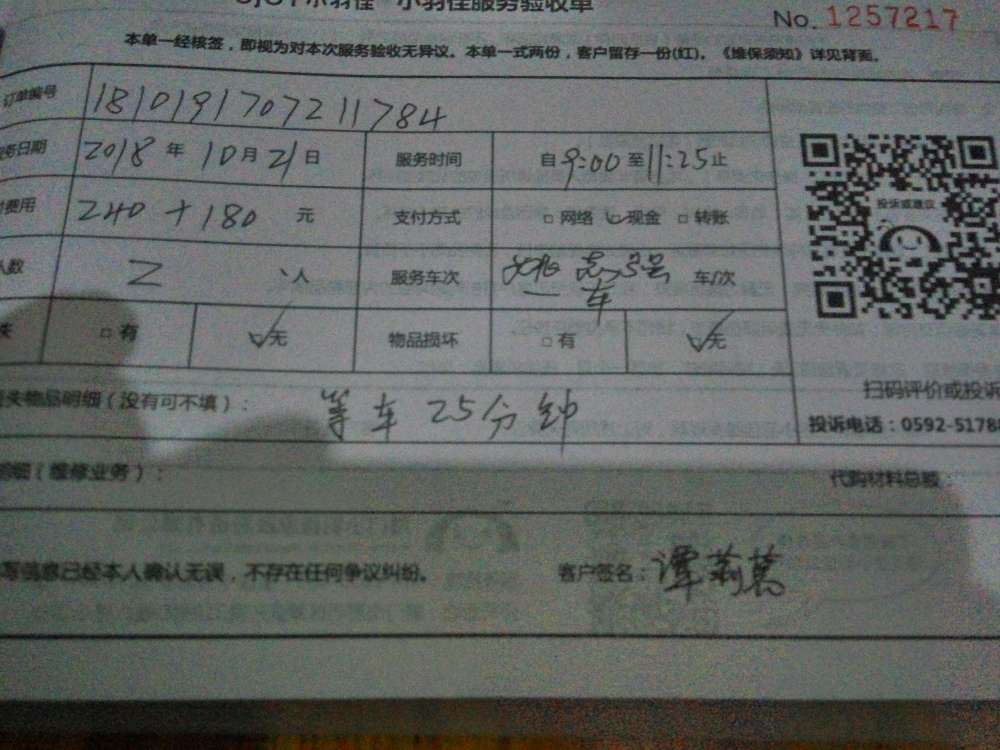 小羽佳服务验收单
No. 1257217
本单一经核签，即视为对本次服务验收无异议。本单一式两份，客户留存一份(红)。《维保须知》详见背面。
订单编号 1810191707211784
务日期 2018 年 10 月 21 日 服务时间 自 9:00 至 11:25 止
费用 240 + 180 元 支付方式 网络 现金 转账
人数 2 人 服务车次 一车 车/次
失 有 无 物品损坏 有 无
失物品明细（没有可不填）： 等车25分钟
投诉或建议
扫码评价或投诉
投诉电话：0592-5178
明细（维修业务）： 代购材料总额：
写信息已经本人确认无误，不存在任何争议纠纷。 客户签名：谭